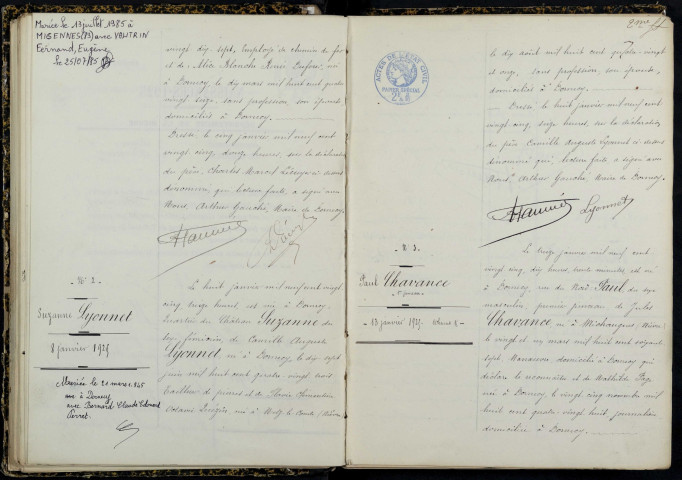 Mariée le 13 juillet 1985 à
MIGENNES (89) avec VAUTRIN
Fernand, Eugène
le 25/07/85
vingt dix sept, Employé de chemin de fer
et de Alix Blanche Renée Dufour, née
à Dornecy le dix mars mil huit cent quatre
vingt seize, sans profession, son épouse,
domiciliés à Dornecy.
Dressé le cinq janvier mil neuf cent
vingt cinq, douze heures, sur la déclaration
du père, Charles Marcel
dénommé, qui, lecture faite, a signé avec
Nous, Arthur Gauché, Maire de Dornecy.
N° 2
Suzanne Lyonnet
8 janvier 1925
Mariée le 21 mars 1945
à Dornecy
avec Bernard Claude Edmont
Perret
Le huit janvier mil neuf cent vingt
cinq, treize heures, est née à Dornecy,
Quartier du Château, Suzanne du
sexe féminin, de Camille Auguste
Lyonnet, né à Dornecy, le dix sept
juin mil huit cent quatre vingt trois
tailleur de pierres et de
née à Metz le Comte (Nièvre)
ACTES DE L'ETAT CIVIL
PAPIER SPECIAL
le dix août mil huit cent quatre-vingt
et onze, sans profession, son épouse,
domiciliés à Dornecy.
Dressé le huit janvier mil neuf cent
vingt cinq, seize heures, sur la déclaration
du père Camille Auguste Lyonnet ci dessus
dénommé qui, lecture faite, a signé avec
Nous, Arthur Gauché, Maire de Dornecy.
Lyonnet
N° 3
Paul Chavance
13 janvier 1925
Le treize janvier mil neuf cent
vingt cinq, dix heures, trente minutes, est né
à Dornecy, rue du Paul du sexe
masculin, premier jumeau de Jules
Chavance né à Michaugues (Nièvre)
le vingt et un mars mil huit cent soixante
sept Manœuvre domicilié à Dornecy qui
déclare le reconnaître et de Mathilde
née à Dornecy, le vingt cinq novembre mil
huit cent quatre vingt huit journalière
domiciliée à Dornecy.